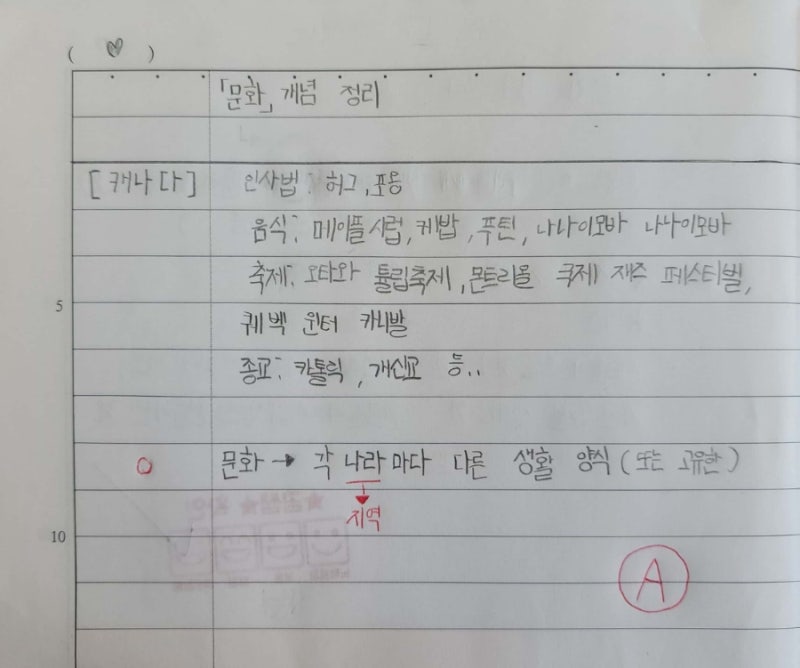 ( ♡ )
「문화」 개념 정리
[캐나다] 인사법: 허그, 포옹
음식: 메이플시럽, 케밥, 푸틴, 나나이모바 나나이모바
축제: 오타와 튤립축제, 몬트리올 국제 재즈 페스티벌,
5
퀘벡 윈터 카니발
종교: 카톨릭, 개신교 등..
○ 문화 → 각 나라마다 다른 생활 양식 (또는 고유한)
지역
10
A